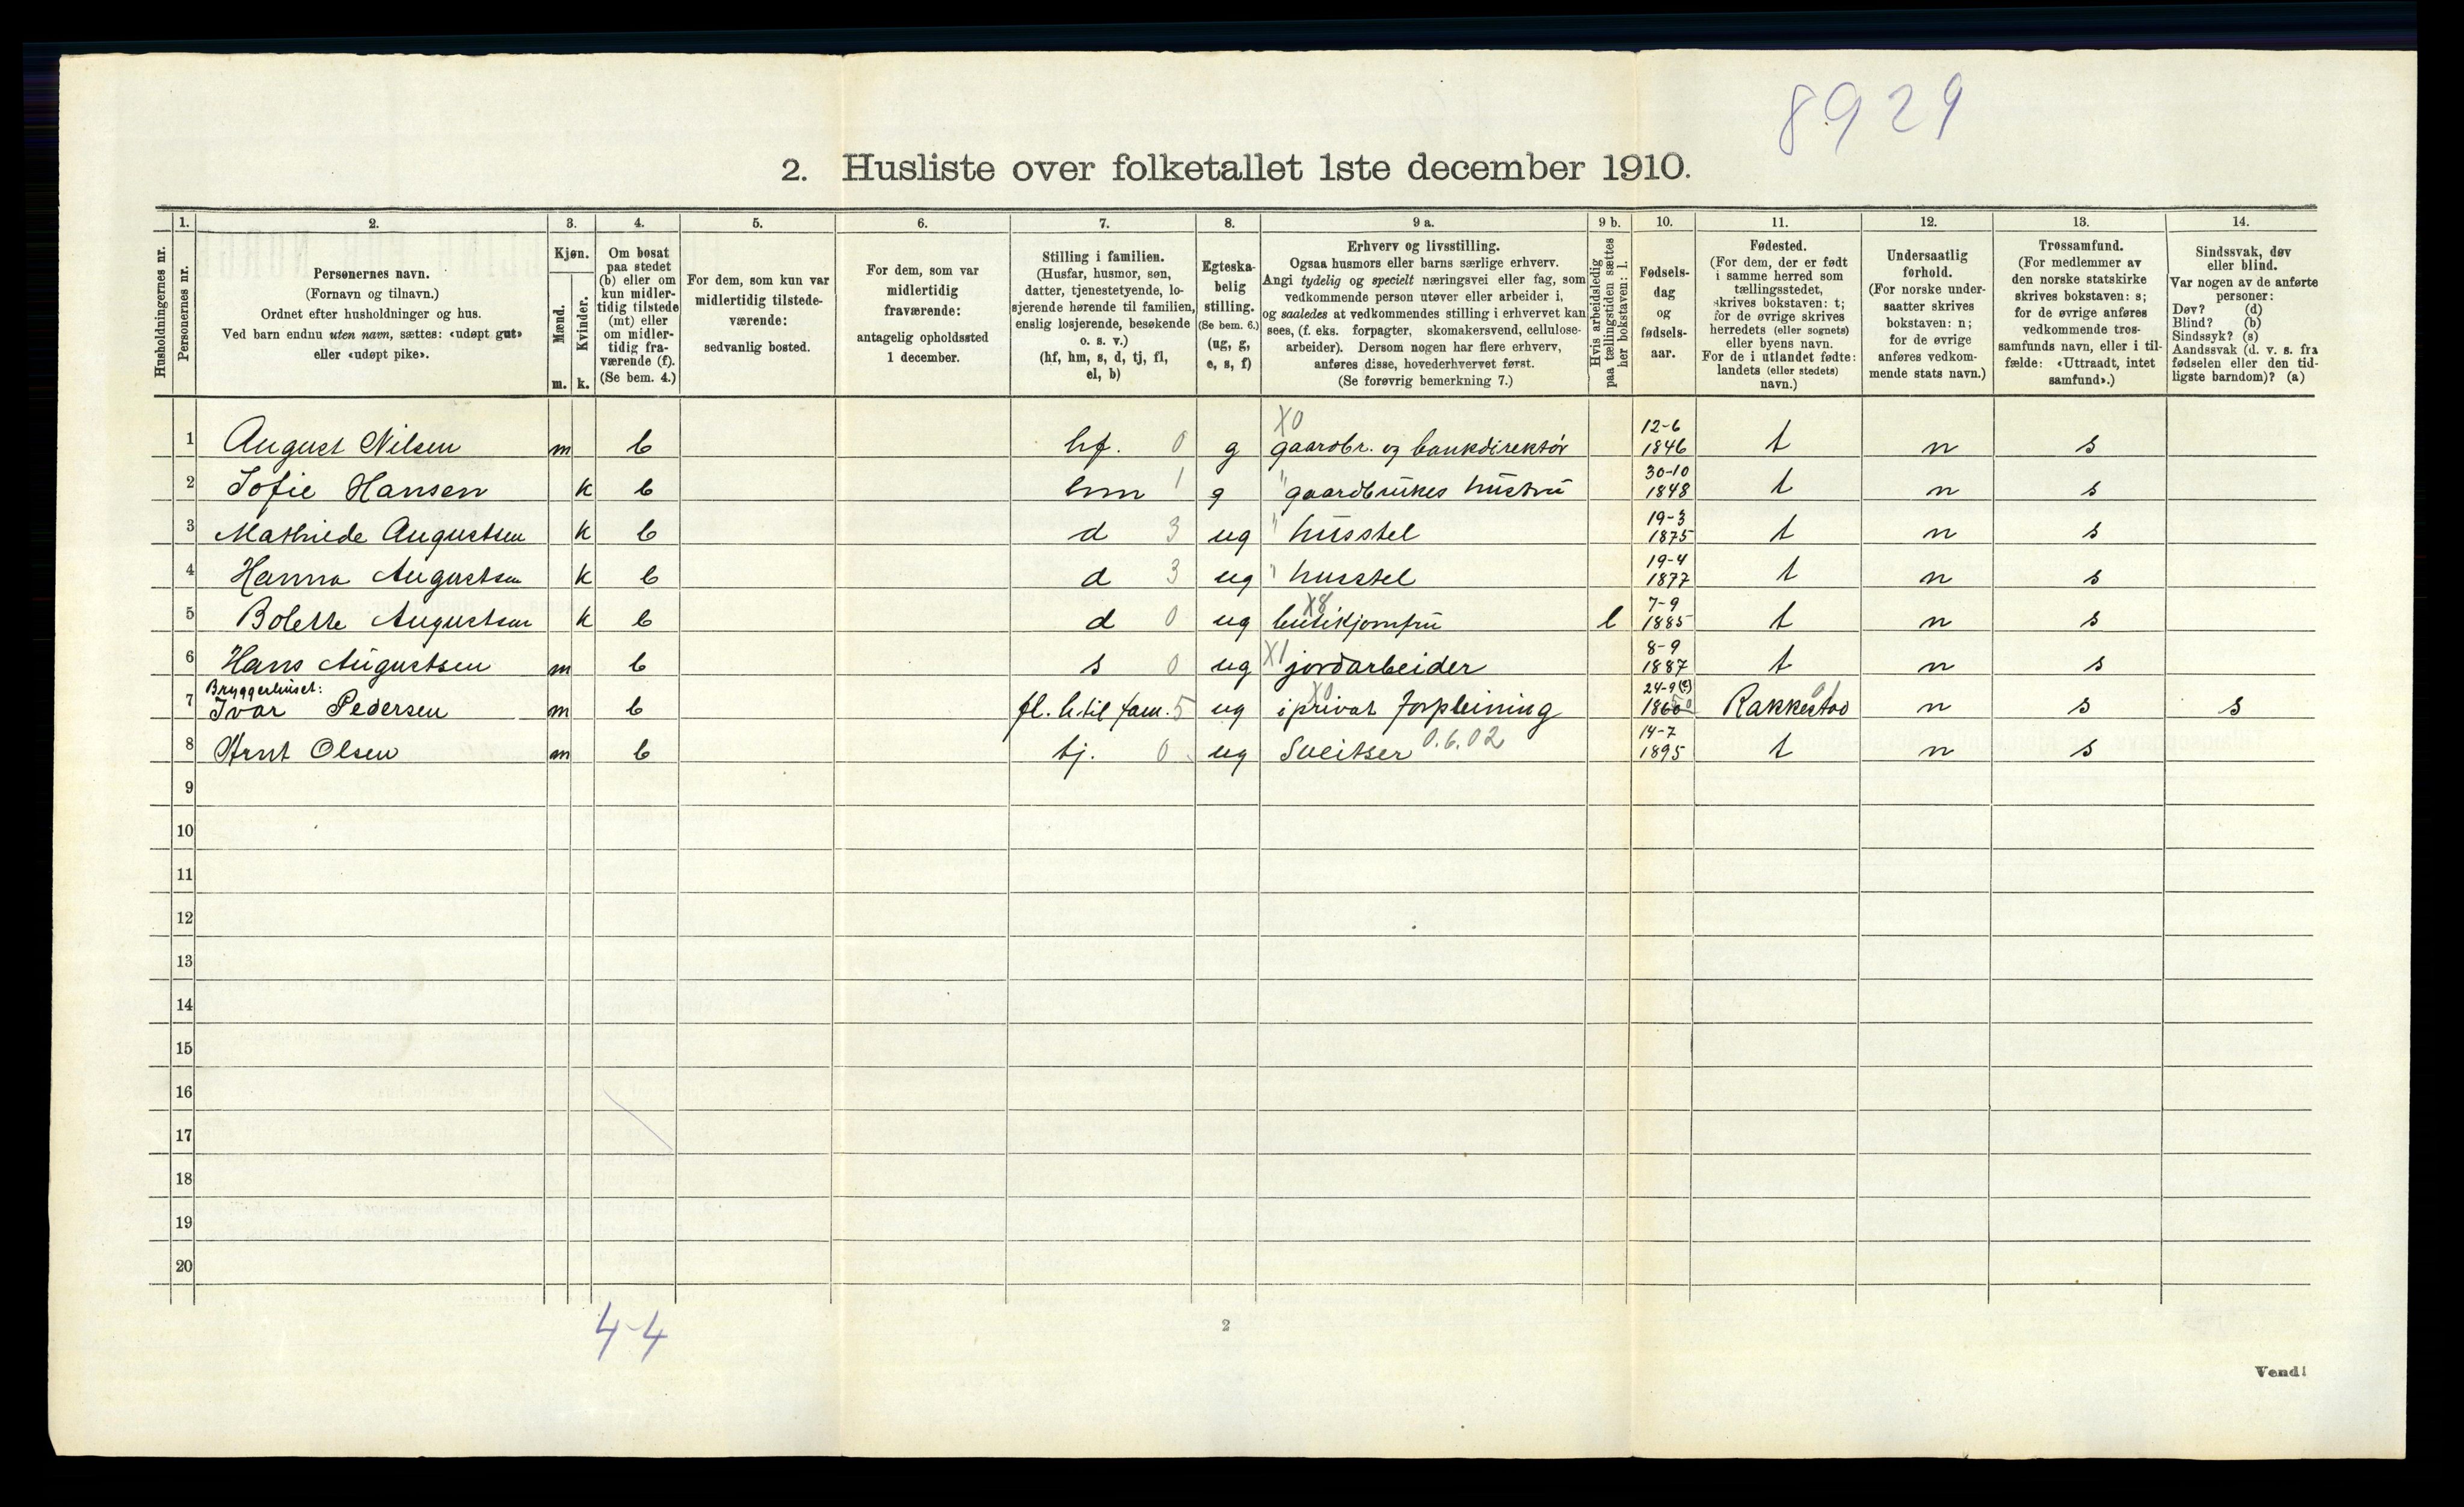 8929
2. Husliste over folketallet 1ste december 1910.
Husholdningernes nr.
1.
Personernes nr.
2.
Personernes navn.
(Fornavn og tilnavn.)
Ordnet efter husholdninger og hus.
Ved barn endnu uten navn, sættes: «udøpt gut»
eller «udøpt pike».
3.
Kjøn.
Mænd.
Kvinder.
m. k.
4.
Om bosat
paa stedet
(b) eller om
kun midler-
tidig tilstede
(mt) eller
om midler-
tidig fra-
værende (f).
(Se bem. 4.)
5.
For dem, som kun var
midlertidig tilstede-
værende:
sedvanlig bosted.
6.
For dem, som var
midlertidig
fraværende:
antagelig opholdssted
1 december.
7.
Stilling i familien.
(Husfar, husmor, søn,
datter, tjenestetyende, lo-
sjerende hørende til familien,
enslig losjerende, besøkende
o. s. v.)
(hf, hm, s, d, tj, fl,
el, b)
8.
Egteska-
belig
stilling.
(Se bem. 6.)
(ug, g,
e, s, f)
9 a.
Erhverv og livsstilling.
Ogsaa husmors eller barns særlige erhverv.
Angi tydelig og specielt næringsvei eller fag, som
vedkommende person utøver eller arbeider i,
og saaledes at vedkommendes stilling i erhvervet kan
sees, (f. eks. forpagter, skomakersvend, cellulose-
arbeider). Dersom nogen har flere erhverv,
anføres disse, hovederhvervet først.
(Se forøvrig bemerkning 7.)
9 b.
Hvis arbeidsledig
paa tællingstiden sættes
her bokstaven: l.
10.
Fødsels-
dag
og
fødsels-
aar.
11.
Fødested.
(For dem, der er født
i samme herred som
tællingsstedet,
skrives bokstaven: t;
for de øvrige skrives
herredets (eller sognets)
eller byens navn.
For de i utlandet fødte:
landets (eller stedets)
navn.)
12.
Undersaatlig
forhold.
(For norske under-
saatter skrives
bokstaven: n;
for de øvrige
anføres vedkom-
mende stats navn.)
13.
Trossamfund.
(For medlemmer av
den norske statskirke
skrives bokstaven: s;
for de øvrige anføres
vedkommende tros-
samfunds navn, eller i til-
fælde: «Uttraadt, intet
samfund».)
14.
Sindssvak, døv
eller blind.
Var nogen av de anførte
personer:
Døv? (d)
Blind? (b)
Sindssyk? (s)
Aandssvak (d. v. s. fra
fødselen eller den tid-
ligste barndom)? (a)
X0 12-6
1 August Nilsen m b hf. 0 g gaardbr. og bankdirektør 1846 t n s
30-10
2 Sofie Hansen k b hm 1 g " gaardbrukes hustru 1848 t n s
19-3
3 Mathilde Augustsen k b d 3 ug " husstel 1875 t n s
19-4
4 Hanna Augustsen k b d 3 ug " husstel 1877 t n s
X8 7-9
5 Bolette Augustsen k b d 0 ug butikjomfru l 1885 t n s
8-9
6 Hans Augustsen m b s 0 ug X1 jordarbeider 1887 t n s
Bryggerhuset: X0 24-9 (?)
7 Ivar Pedersen m b fl. h. til fam. 5 ug i privat forpleining 1860 Rakkestad n s s
14-7
8 Arnt Olsen m b tj. 0 ug Sveitser 0.6.02 1895 t n s
9
10
11
12
13
14
15
16
17
18
19
20
4-4
2
Vend!